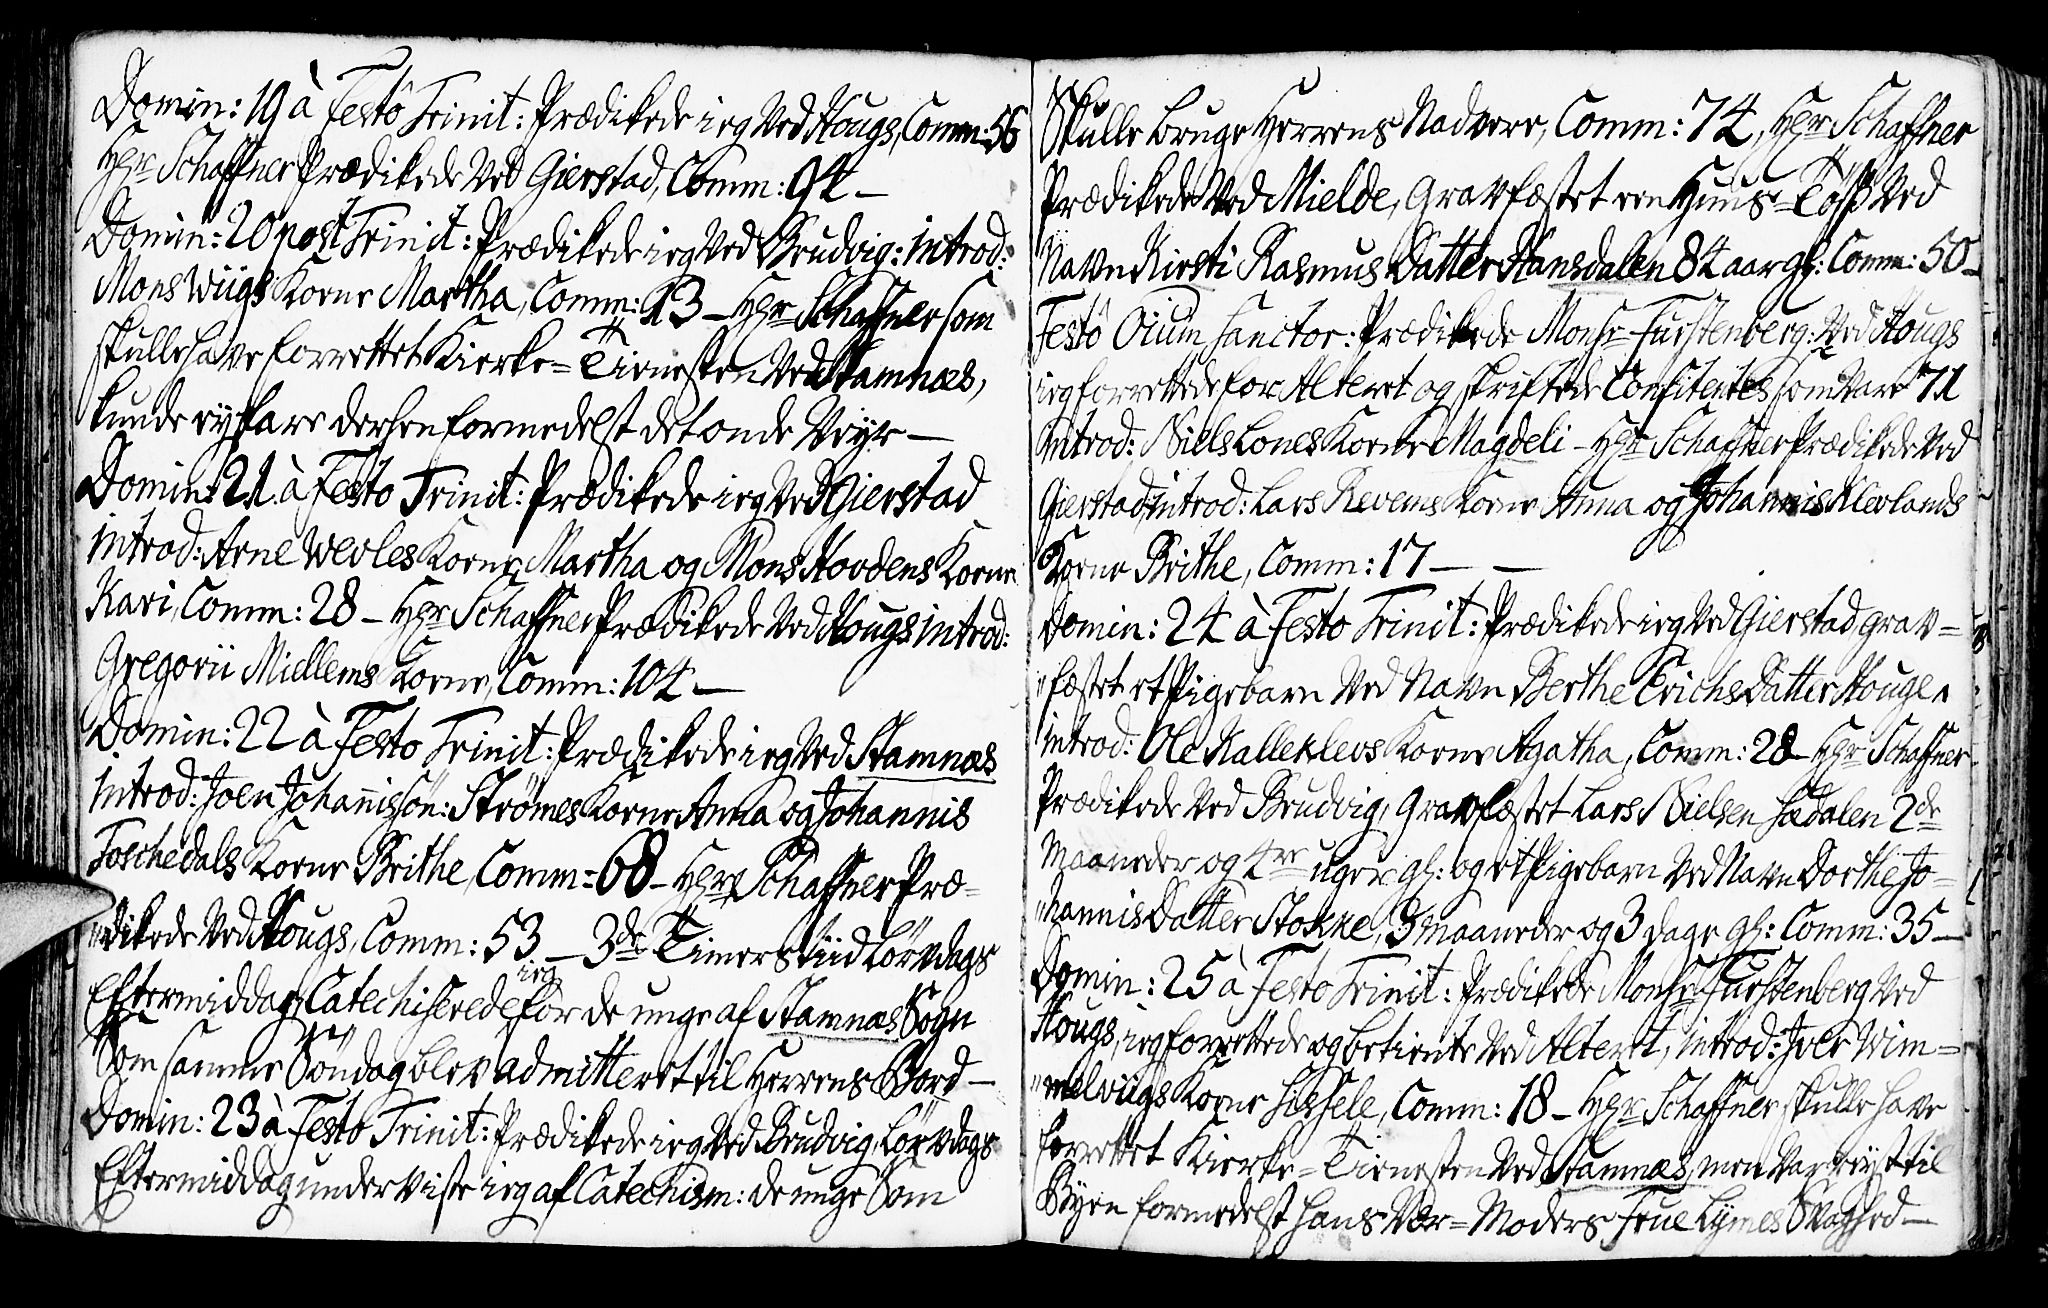 Domin: 19 à Festo Trinit: Prædikede ieg ved Hougs, Comm: 56
Hr Schaffner Prædikede ved Gierstad, Comm: 94 –
Domin: 20 post Trinit: Prædikede ieg ved Brudvig: introd:
Mons Wiigs Kone Martha, Comm: 93 – Hr Schaffner som
skulle have forrettet Kierke=Tienesten ved Stamnæs,
kunde ey fare derhen formedelst det onde Veyr –
Domin: 21 à Festo Trinit: Prædikede ieg ved Gierstad
introd: Arne Wevles Kone Martha og Mons Hovdens Kone
Kari, Comm: 28 – Hr Schaffner Prædikede ved Hougs introd:
Gregorii Miellems Kone, Comm: 104 –
Domin: 22 à Festo Trinit: Prædikede ieg ved Stamnæs
introd: Joen Johannissön: Strømes Kone Anna og Johannis
Toschedals Kone Brithe, Comm: 68 – Hr Schaffner Præ=
dikede ved Hougs, Comm: 53 – 3de Timers tiid Løvdags
Eftermiddag Catechiserede ieg for de unge af Stamnæs Sogn
som samme Söndag blev admitteret til Herrens Bord –
Domin: 23 à Festo Trinit: Prædikede ieg ved Brudvig, Lövdags
Eftermiddag underviste ieg af Catechism: de unge som
skulle bruge Herrens Nadvere, Comm: 74, Hr Schaffner
Prædikede ved Mielde, Gravfæstet een Huus=Töß ved
Navn Kirsti Rasmus Datter Hansdalen 84 aar gl: Comm: 50 –
Festo Oium Sanctor: Prædikede Monsr Furstenberg: ved Hougs
ieg forrettede for Alteret og skriftede Confitentes som vare 71
introd: Niels Lones Kone Magdeli – Hr Schaffner Prædikede ved
Gierstad, introd: Lars Revems Kone Anna og Johannis Klevlands
Kone Brithe, Comm: 17 – –
Domin: 24 à Festo Trinit: Prædikede ieg ved Gierstad, grav=
fæstet et Pigebarn ved Navn Berthe Erichs Datter Houge,
introd: Ole Kalleklevs Kone Agatha, Comm: 28 – Hr Schaffner
Prædikede ved Brudvig, Gravfæstet Lars Nielsen Sædalen 2de
Maaneder og 4re uger gl: og et Pigebarn ved Navn Dorthe Jo=
hannis Datter Stokke, 3 maaneder og 3 dage gl: Comm: 35 –
Domin: 25 à Festo Trinit: Prædikede Monsr Furstenberg ved
Hougs, ieg forrettede og betiente ved Alteret, introd: Iver Wim=
melviigs Kone Sissele, Comm: 18 – Hr Schaffner skulle have
forrettet Kierke=Tienesten ved Stamnæs, men var reyst til
Byen formedelst hans Vær=Moders Frue Lymes Svaghed –